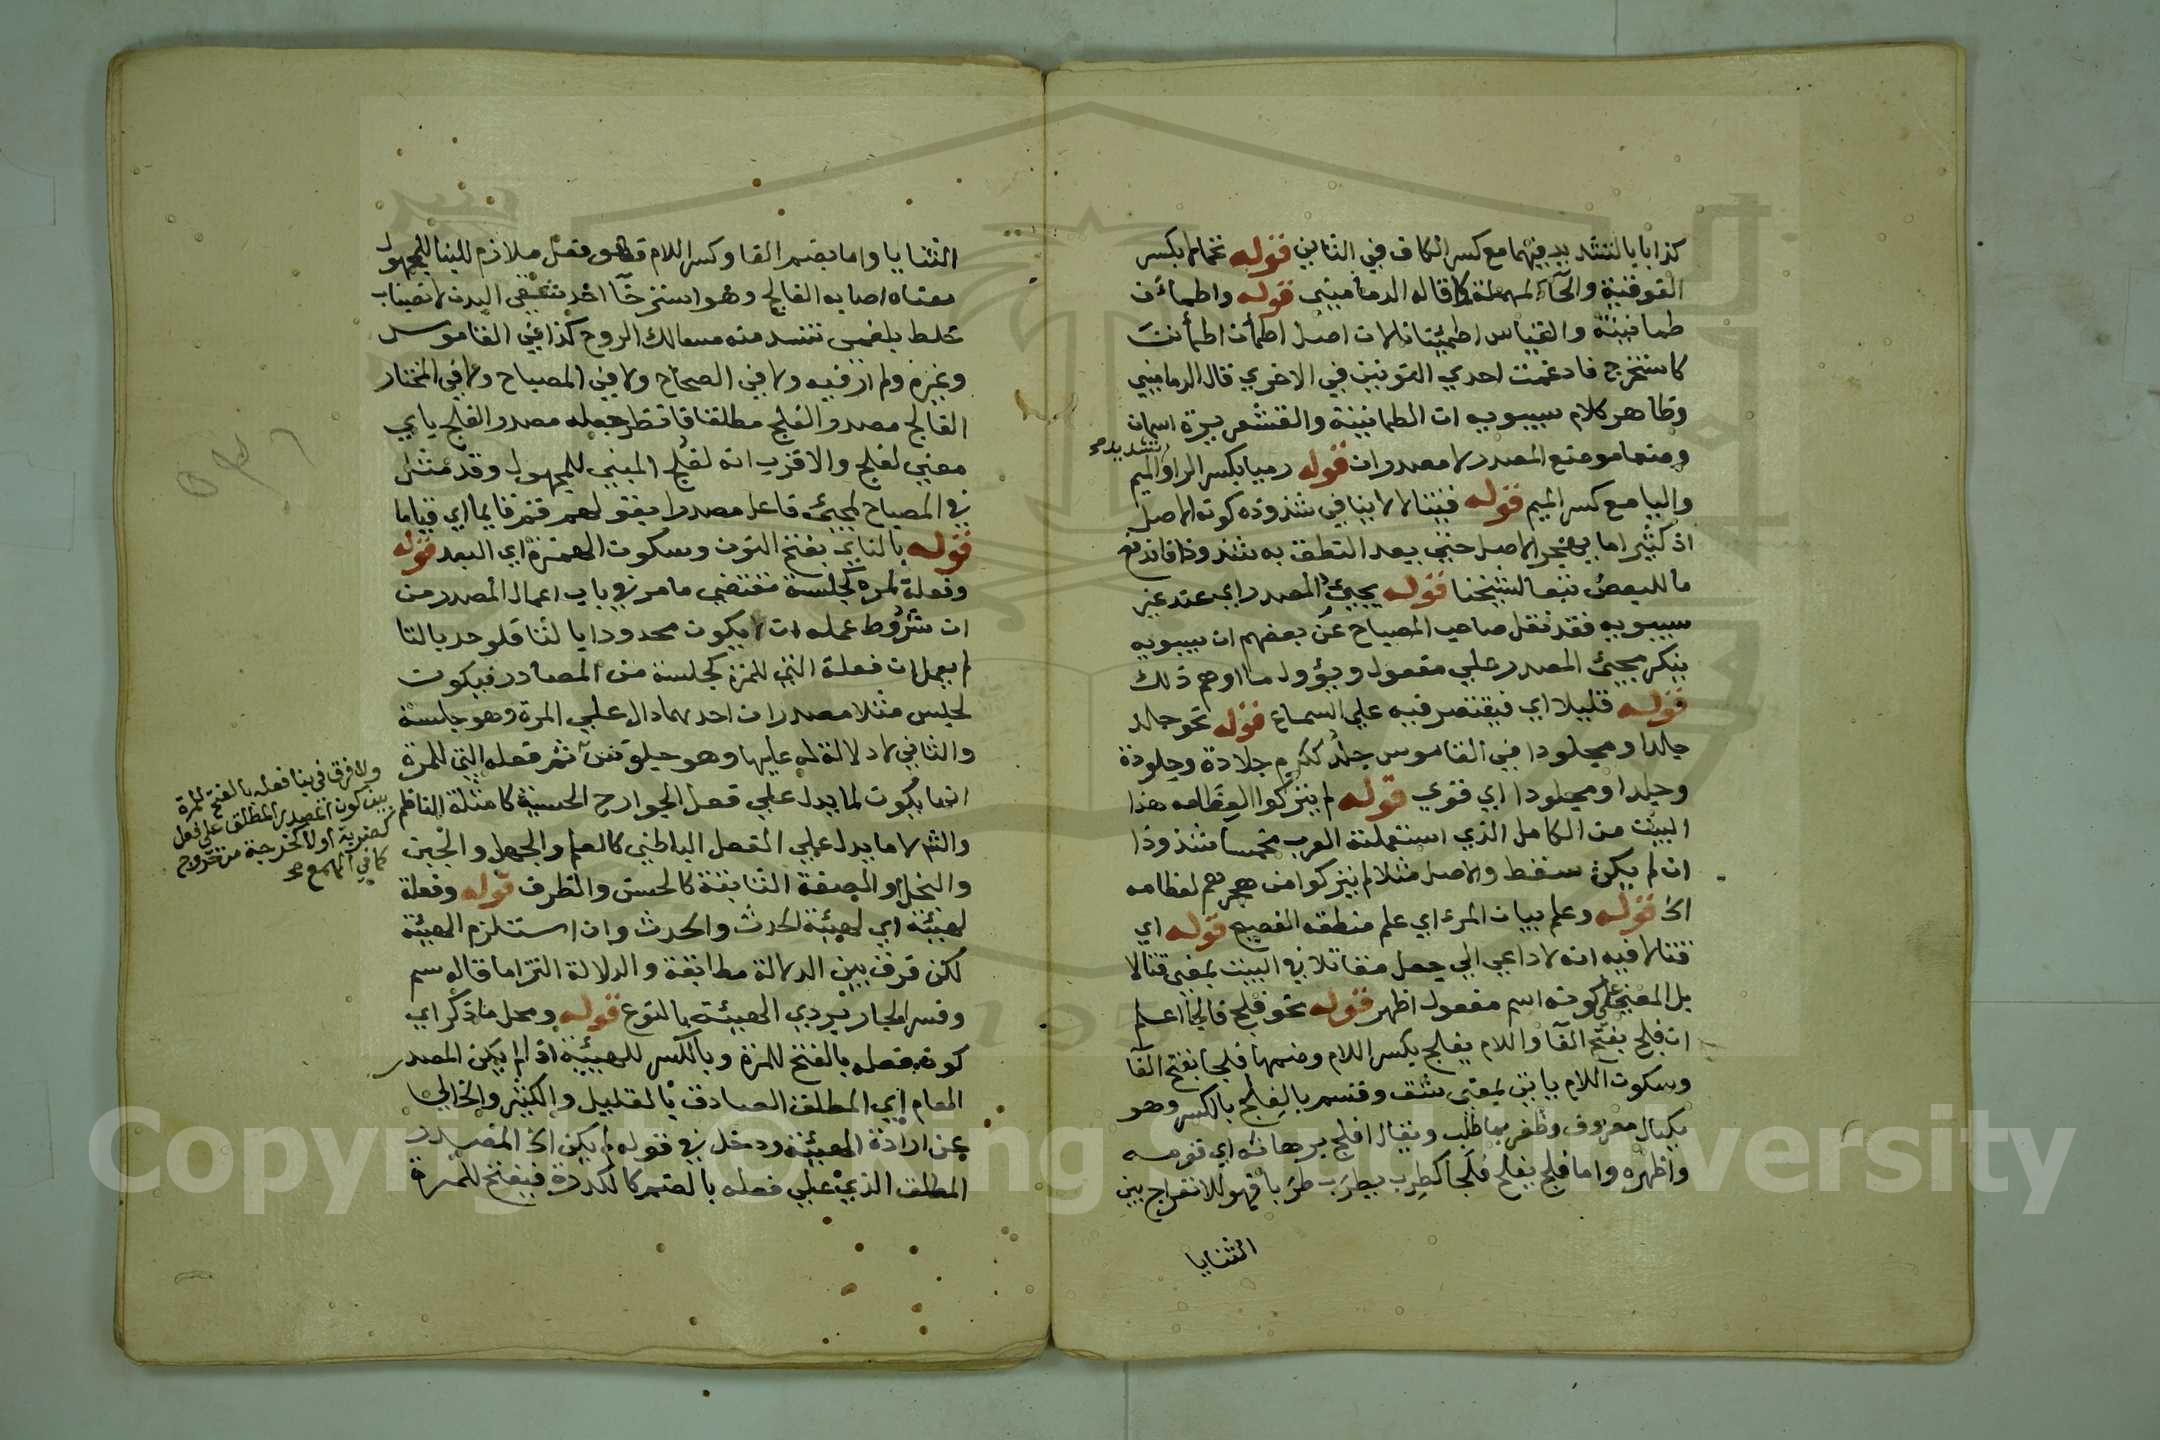 كذابا بالتشديد فيهما مع كسر الكاف في الثاني قوله تحمالا بكسر
الفوقية والحاء المهملة كما قاله الدماميني قوله واطمأن
طمانينة والقياس اطمئنانا لان اصل اطمأن اطمأننَ
كاستخرج فادغمت احدي النونين في الاخري قال الدماميني
وظاهر كلام سيبويه ان الطمانينة والقشعريرة اسمان
وضعا موضع المصدر لا مصدران قوله رميا بكسر الرا والميم
وتشديد صح
واليا مع كسر الميم قوله قيتالا لا ينافي شذوذه كونه الاصل
اذ كثيرا ما يهجر الاصل حتي يعد النطق به شذوذا فاندفع
ما للبعض تبعا لشيخنا قوله يجيئ المصدر اي عند غير
سيبويه فقد نقل صاحب المصباح عن بعضهم ان سيبويه
ينكر مجيئ المصدر علي مفعول ويؤول ما اوهم ذلك
قوله قليلا اي فيقتصر فيه علي السماع قوله نحو جلد
جلدا ومجلودا في القاموس جلُد ككرم جلادة وجلودة
وجلدا ومجلودا اي قوي قوله لم يتركوا لعظامه هذا
البيت من الكامل الذي استعملته العرب مخمسا شذوذا
ان لم يكن سقط والاصل مثلا لم يتركوا من هجرهم لعظامه
الخ قوله وعلم بيان المرء اي علم منطقه الفصيح قوله اي
قتالا فيه انه لا داعي الي جعل مقاتلا في البيت بمعني قتالا
بل المعني علي كونه اسم مفعول اظهر قوله نحو فلج فالجا اعلم
ان فلج بفتح الفا واللام يفلج بكسر اللام وضمها فلجا بفتح الفا
وسكون اللام ياتي بمعني شق وقسم بالفِلْج بالكسر وهو
مكيال معروف وظفر بما طلب ويقال افلج برهانه اي قومه
واظهره واما فلج يفلج فلَجا كطرِب يطرَب طرَبا فهو للانفراج بين
الثنايا
الثنايا واما بضم الفا وكسر اللام فهو فعل ملازم للبنا للمجهول
معناه اصابه الفالج وهو استرخآ احد شقي البدن لانصباب
خلط بلغمي تنسد منه مسالك الروح كذا في القاموس
وغيره ولم ار فيه ولا في الصحاح ولا في المصباح ولا في المختار
الفالج مصدر الفلج مطلقا فانظر جعله مصدر الفلج باي
معني لفلج والاقرب انه لفُلج المبني للمجهول وقد مثل
في المصباح لمجيئ فاعل مصدرا بقولهم قم قايما اي قياما
قوله بالناي بفتح النون وسكون الهمزة اي البعد قوله
وفعلة لمرة كجلسة مقتضي ما مر في باب اعمال المصدر من
ان شروط عمله ان لا يكون محدودا بالتا فلو حد بالتا
لم يعمل ان فعلة التي للمرة كجلسة من المصادر فيكون
لجلس مثلا مصدران احدهما دال علي المرة وهو جلسة
والثاني لا دلالة له عليها وهو جلوس ثم فعله التي للمرة
انما يكون لما يدل علي فعل الجوارح الحسية كامثلة الناظم
والشر لا ما يدل علي الفعل الباطني كالعلم والجهل والجبن
والبخل او الصفة الثابتة كالحسن والظرف قوله وفعلة
لهيئة اي لهيئة لحدث والحدث وان استلزم الهيئة
لكن فرق بين الدلالة مطابقة والدلالة التزاما قاله سم
وفسر الجاربردي الهيئة بالنوع قوله ومحل ما ذكر اي
كون فعله بالفتح للمرة وبالكسر للهيئة اذ لم يكن المصدر
العام اي المطلق الصادق بالقليل والكثير والخالي
عن ارادة الهيئة ودخل في قوله لم يكن الخ المصدر
المطلق الذي علي فعله بالضم كالكدرة فيفتح للمرة
ولا فرق في بنا فعله بالفتح للمرة
بين كون المصدر المطلق علي فعل
كضربة او لا كخرجة من خروج
كما في الهمع صح